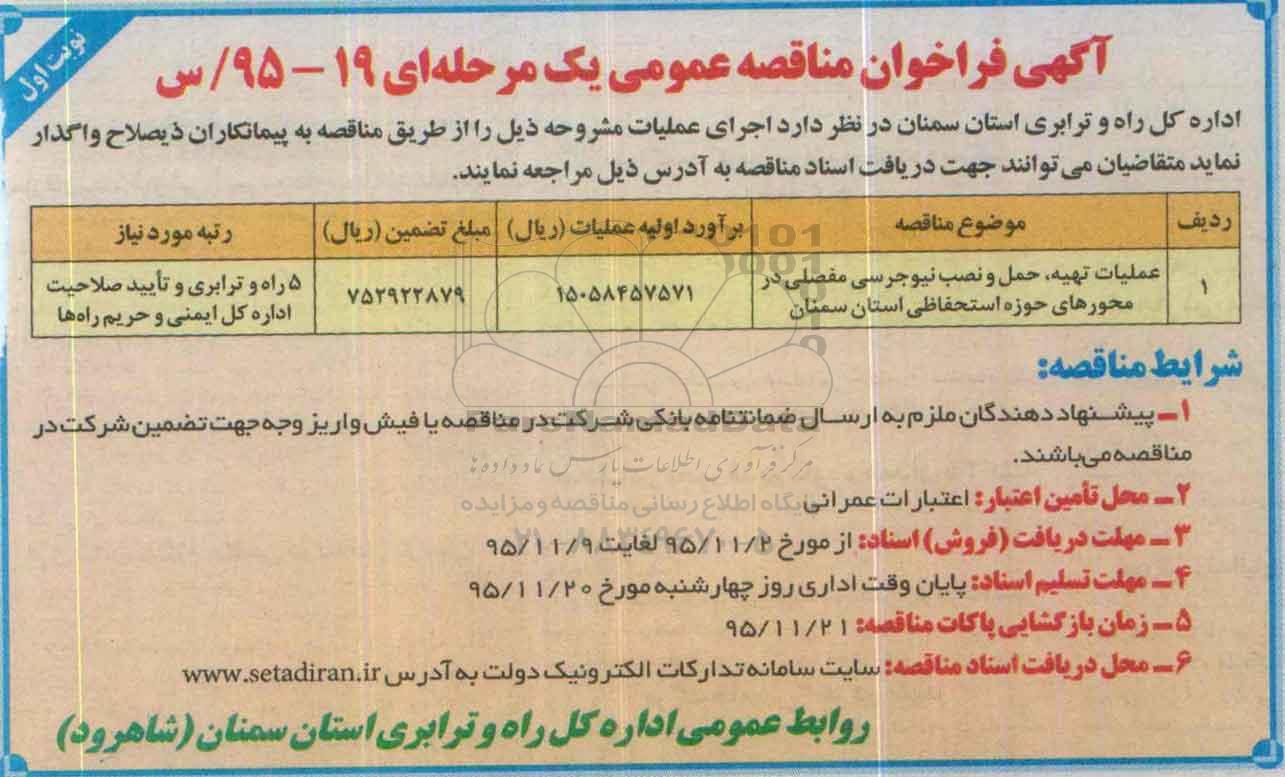 نوبت اول
آگهی فراخوان مناقصه عمومی یک مرحله‌ای ۱۹ – ۹۵/س
اداره کل راه و ترابری استان سمنان در نظر دارد اجرای عملیات مشروحه ذیل را از طریق مناقصه به پیمانکاران ذیصلاح واگذار
نماید متقاضیان می‌توانند جهت دریافت اسناد مناقصه به آدرس ذیل مراجعه نمایند.
ردیف موضوع مناقصه برآورد اولیه عملیات (ریال) مبلغ تضمین (ریال) رتبه مورد نیاز
۱ عملیات تهیه، حمل و نصب نیوجرسی مفصلی در محورهای حوزه استحفاظی استان سمنان ۱۵۰۵۸۴۵۷۵۷۱ ۷۵۲۹۲۲۸۷۹ ۵ راه و ترابری و تأیید صلاحیت اداره کل ایمنی و حریم راه‌ها
شرایط مناقصه:
۱ــ پیشنهاد دهندگان ملزم به ارسال ضمانتنامه بانکی شرکت در مناقصه یا فیش واریز وجه جهت تضمین شرکت در
مناقصه می‌باشند.
۲ــ محل تأمین اعتبار: اعتبارات عمرانی
۳ــ مهلت دریافت (فروش) اسناد: از مورخ ۹۵/۱۱/۲ لغایت ۹۵/۱۱/۹
۴ــ مهلت تسلیم اسناد: پایان وقت اداری روز چهارشنبه مورخ ۹۵/۱۱/۲۰
۵ــ زمان بازگشایی پاکات مناقصه: ۹۵/۱۱/۲۱
۶ــ محل دریافت اسناد مناقصه: سایت سامانه تدارکات الکترونیک دولت به آدرس www.setadiran.ir
روابط عمومی اداره کل راه و ترابری استان سمنان (شاهرود)
مرکز فرآوری اطلاعات پارس نماد داده ها
پایگاه اطلاع رسانی مناقصه و مزایده